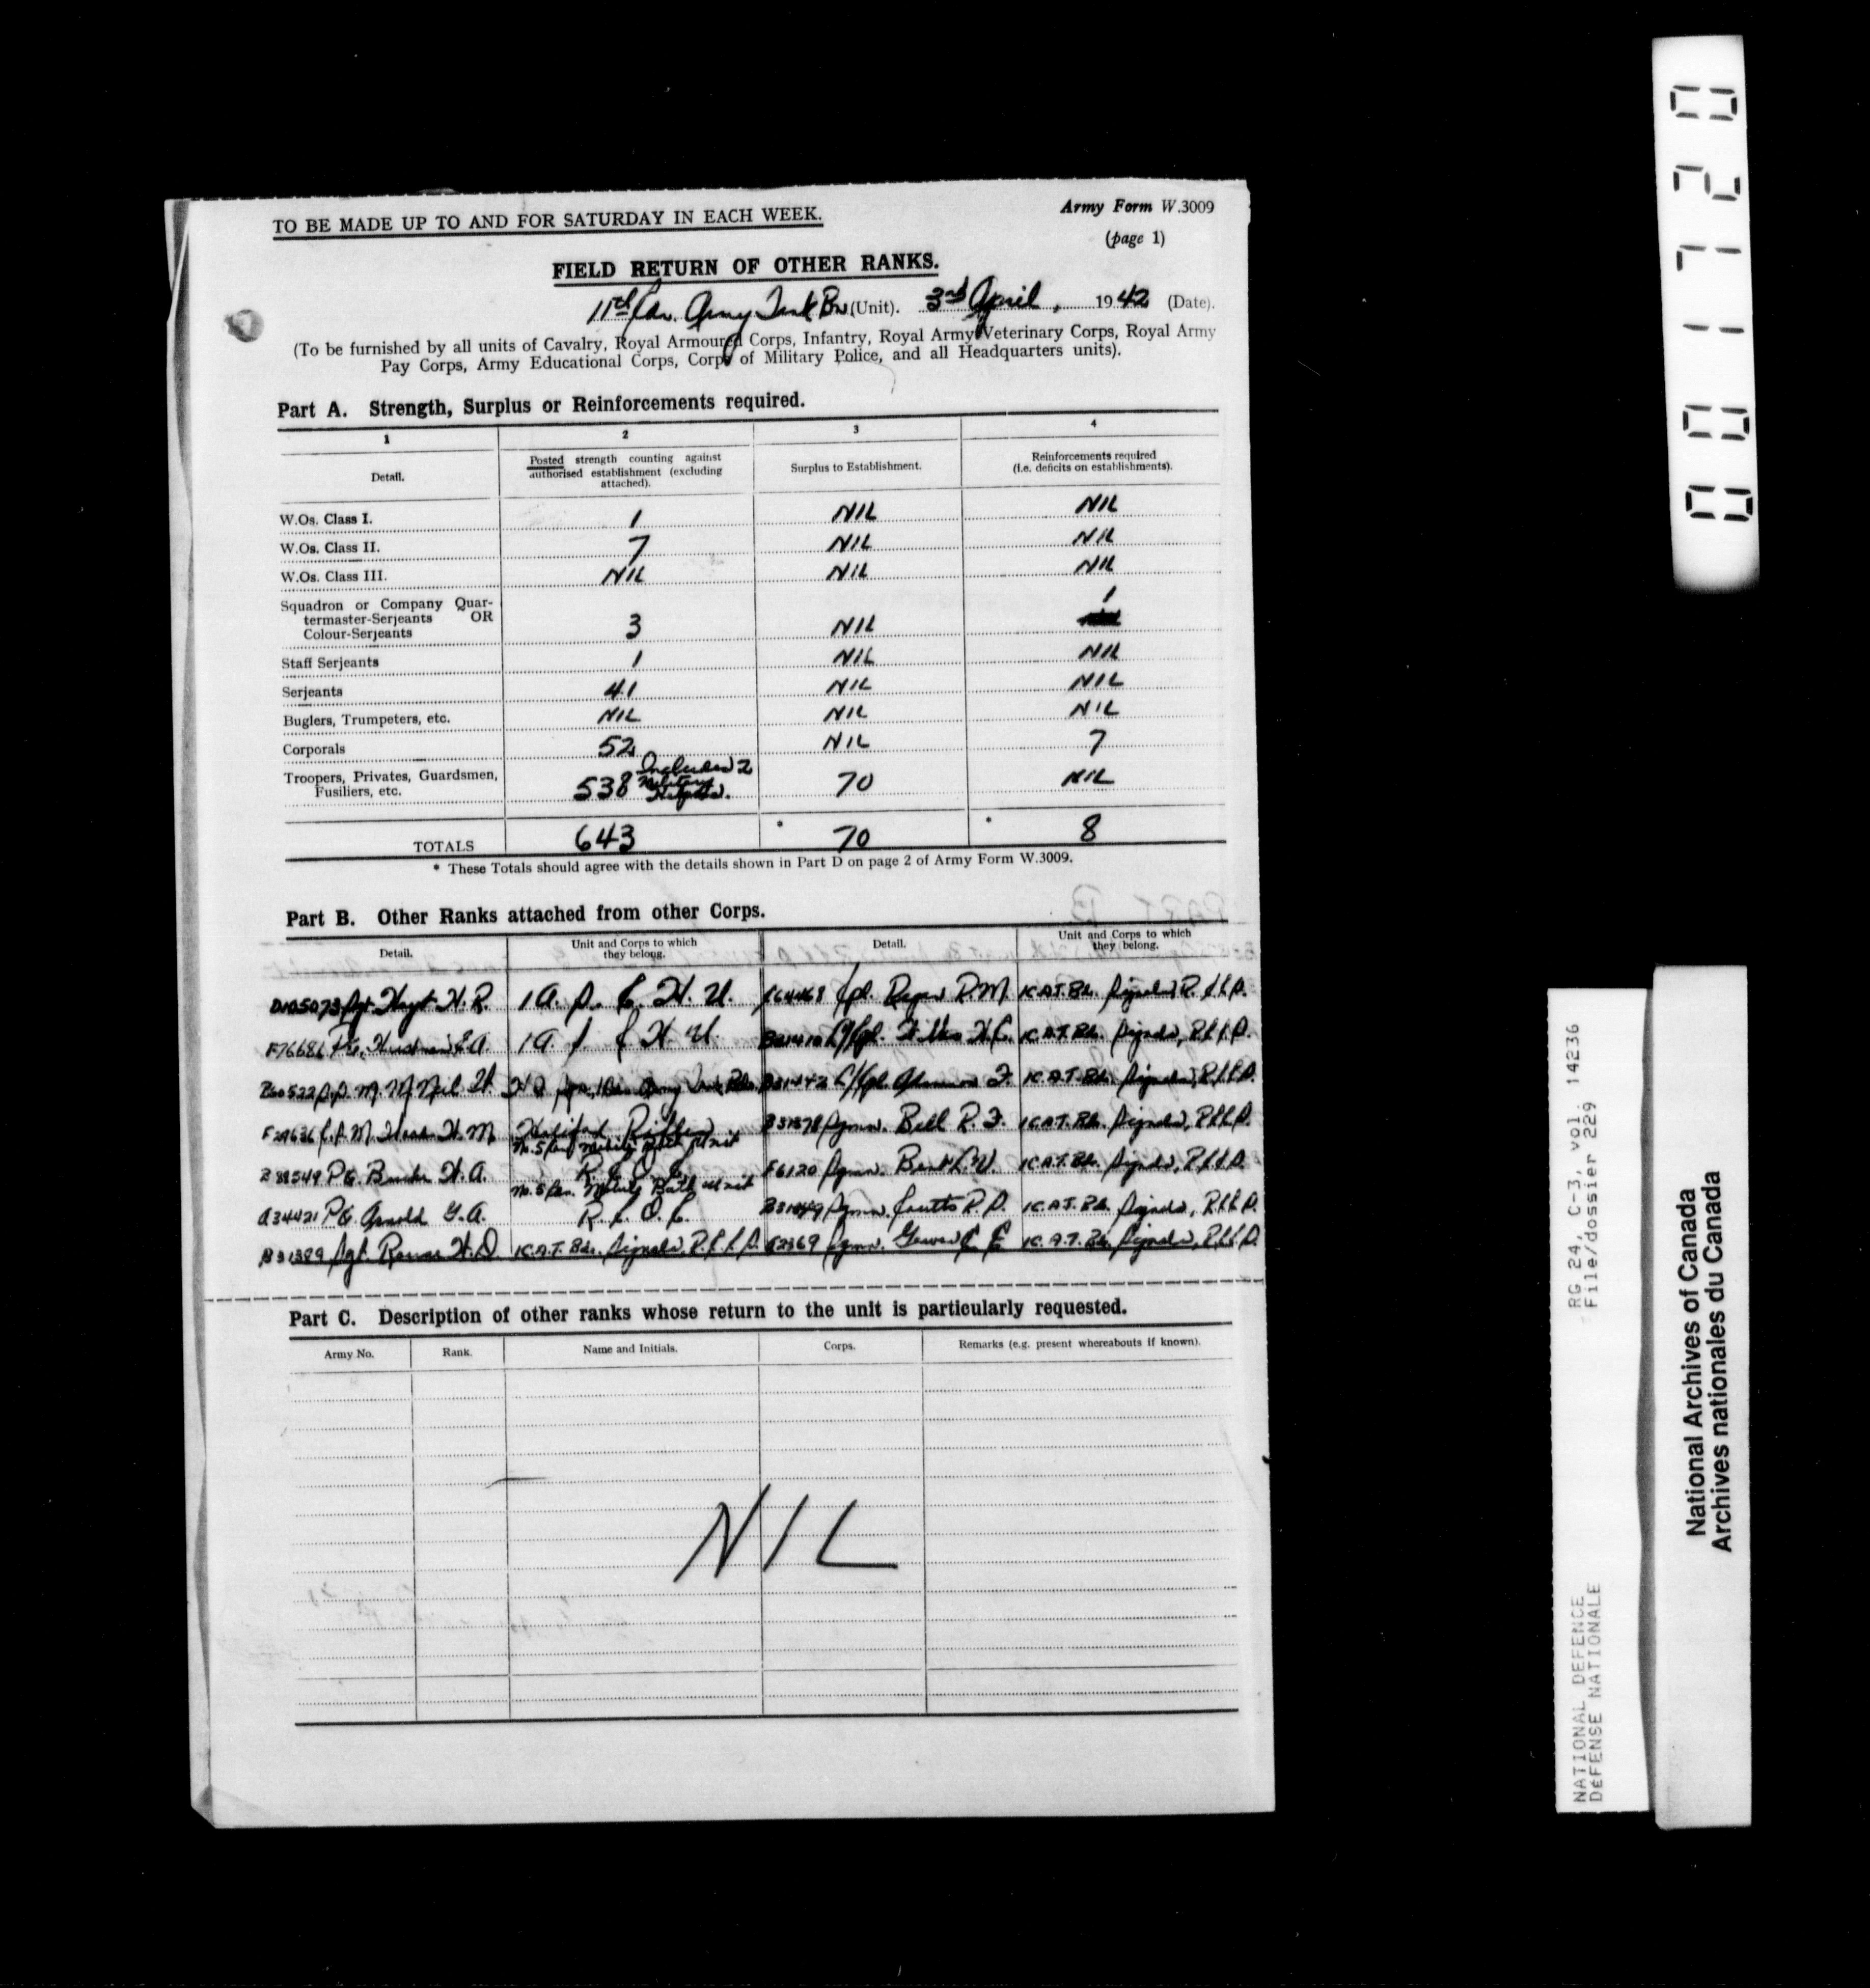 TO BE MADE UP TO AND FOR SATURDAY IN EACH WEEK.
Army Form W.3009
(page 1)
FIELD RETURN OF OTHER RANKS.
11th Can. Army Tank Bn (Unit). 3rd April, 1942 (Date).
(To be furnished by all units of Cavalry, Royal Armoured Corps, Infantry, Royal Army Veterinary Corps, Royal Army
Pay Corps, Army Educational Corps, Corps of Military Police, and all Headquarters units).
Part A. Strength, Surplus or Reinforcements required.
1 2 3 4
Detail. Posted strength counting against authorised establishment (excluding attached). Surplus to Establishment. Reinforcements required (i.e. deficits on establishments).
W.Os. Class I. 1 NIL NIL
W.Os. Class II. 7 NIL NIL
W.Os. Class III. NIL NIL NIL
Squadron or Company Quar-
termaster-Serjeants OR
Colour-Serjeants 3 NIL 1
Staff Serjeants 1 NIL NIL
Serjeants 41 NIL NIL
Buglers, Trumpeters, etc. NIL NIL NIL
Corporals 52 NIL 7
Troopers, Privates, Guardsmen,
Fusiliers, etc. 538 Includes 2 Military 70 NIL
TOTALS 643 * 70 * 8
* These Totals should agree with the details shown in Part D on page 2 of Army Form W.3009.
Part B. Other Ranks attached from other Corps.
Detail. Unit and Corps to which they belong. Detail. Unit and Corps to which they belong.
Sgt. Hoyt H. R. Cpl. R. M. Signals, R.C.C.S.
F76686 Pte. E. A. L/Cpl. H. C. Signals, R.C.C.S.
M. H. Army Tank L/Cpl. F. Signals, R.C.C.S.
H. M. Halifax Rifles Sgmn. Bell R. F. Signals, R.C.C.S.
No. 5 Can. Mobile Bath Unit
Pte. H. A. R. C. O. C. F6120 Sgmn. Signals, R.C.C.S.
No. 5 Can. Mobile Bath Unit
A34421 Pte. Arnold G. A. R. C. O. C. Sgmn. Coutts R. D. Signals, R.C.C.S.
Sgt. H. D. Signals, R.C.C.S. Sgmn. Signals, R.C.C.S.
Part C. Description of other ranks whose return to the unit is particularly requested.
Army No. Rank. Name and Initials. Corps. Remarks (e.g. present whereabouts if known).
NIL
001720
RG 24, C-3, vol. 14236
File/dossier 229
NATIONAL DEFENCE
DÉFENSE NATIONALE
National Archives of Canada
Archives nationales du Canada